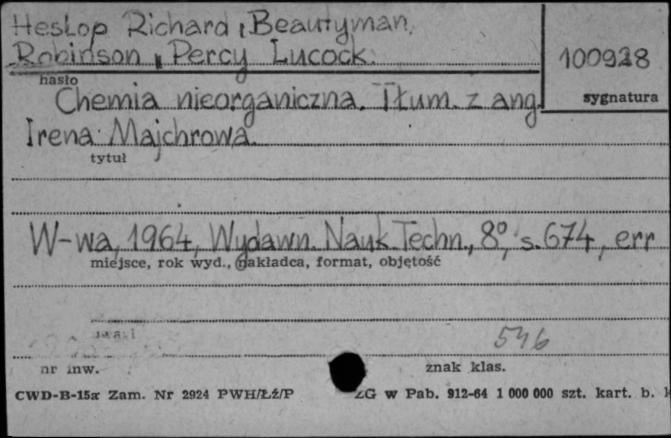 Heslop Richard, Beautyman,
Robinson, Percy Lucock.
100928
hasło
sygnatura
Chemia nieorganiczna. Tłum. z ang.
Irena Majchrowa.
tytuł
W-wa, 1964, Wydawn. Nauk. Techn., 8°, s. 674, err
miejsce, rok wyd., nakładca, format, objętość
uwagi
546
nr inw.
znak klas.
CWD-B-15a Zam. Nr 2924 PWH/Łź/P ZG w Pab. 912-64 1 000 000 szt. kart. b.